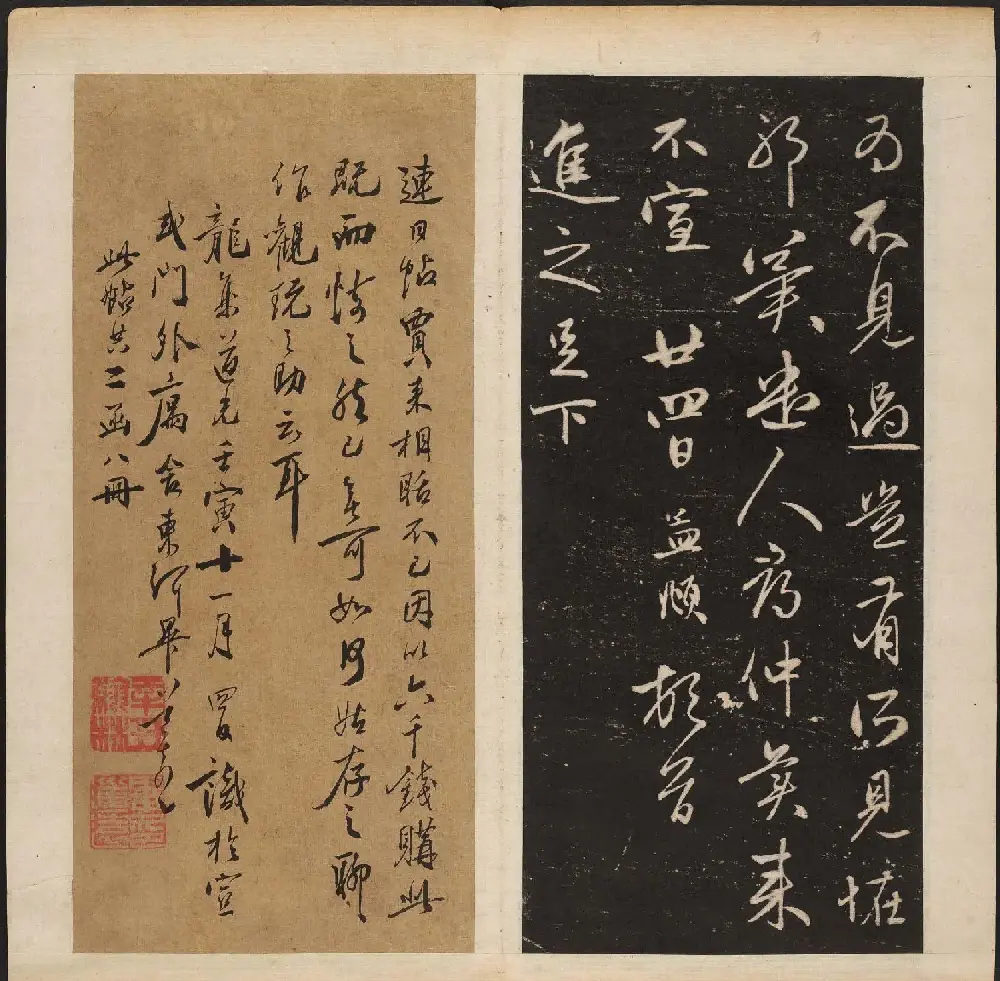 为不見過豈有所見恠
耶 人病仲冀未
不宣 廿四日 益順 頓首
進之足下
連日帖賈来相聒不已因以六千錢購此
既而悔之然已無可如何姑存之聊
作觀玩之助云耳
龍集道光壬寅十一月 四日識於宣
武門外寓舍東
此帖共二函八冊